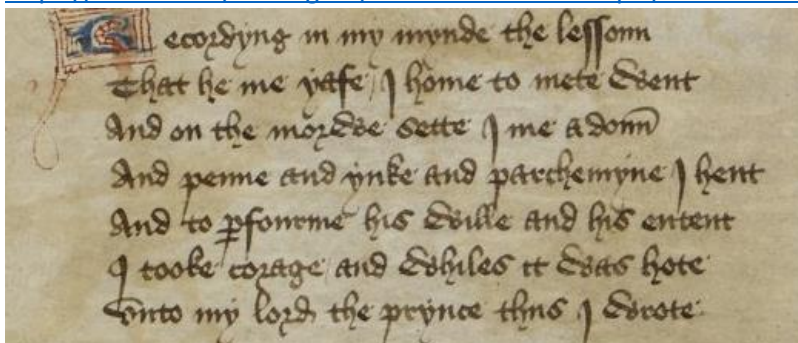 Recordyng in my mynde the lessoun
That he me yafe I home to mete went
And on the morwe sette I me adoun
And penne and ynke and parchemyne I hent
And to ꝑfourme his wille and his entent
I tooke corage and whiles it was hote
Vnto my lord the prynce thus I wrote